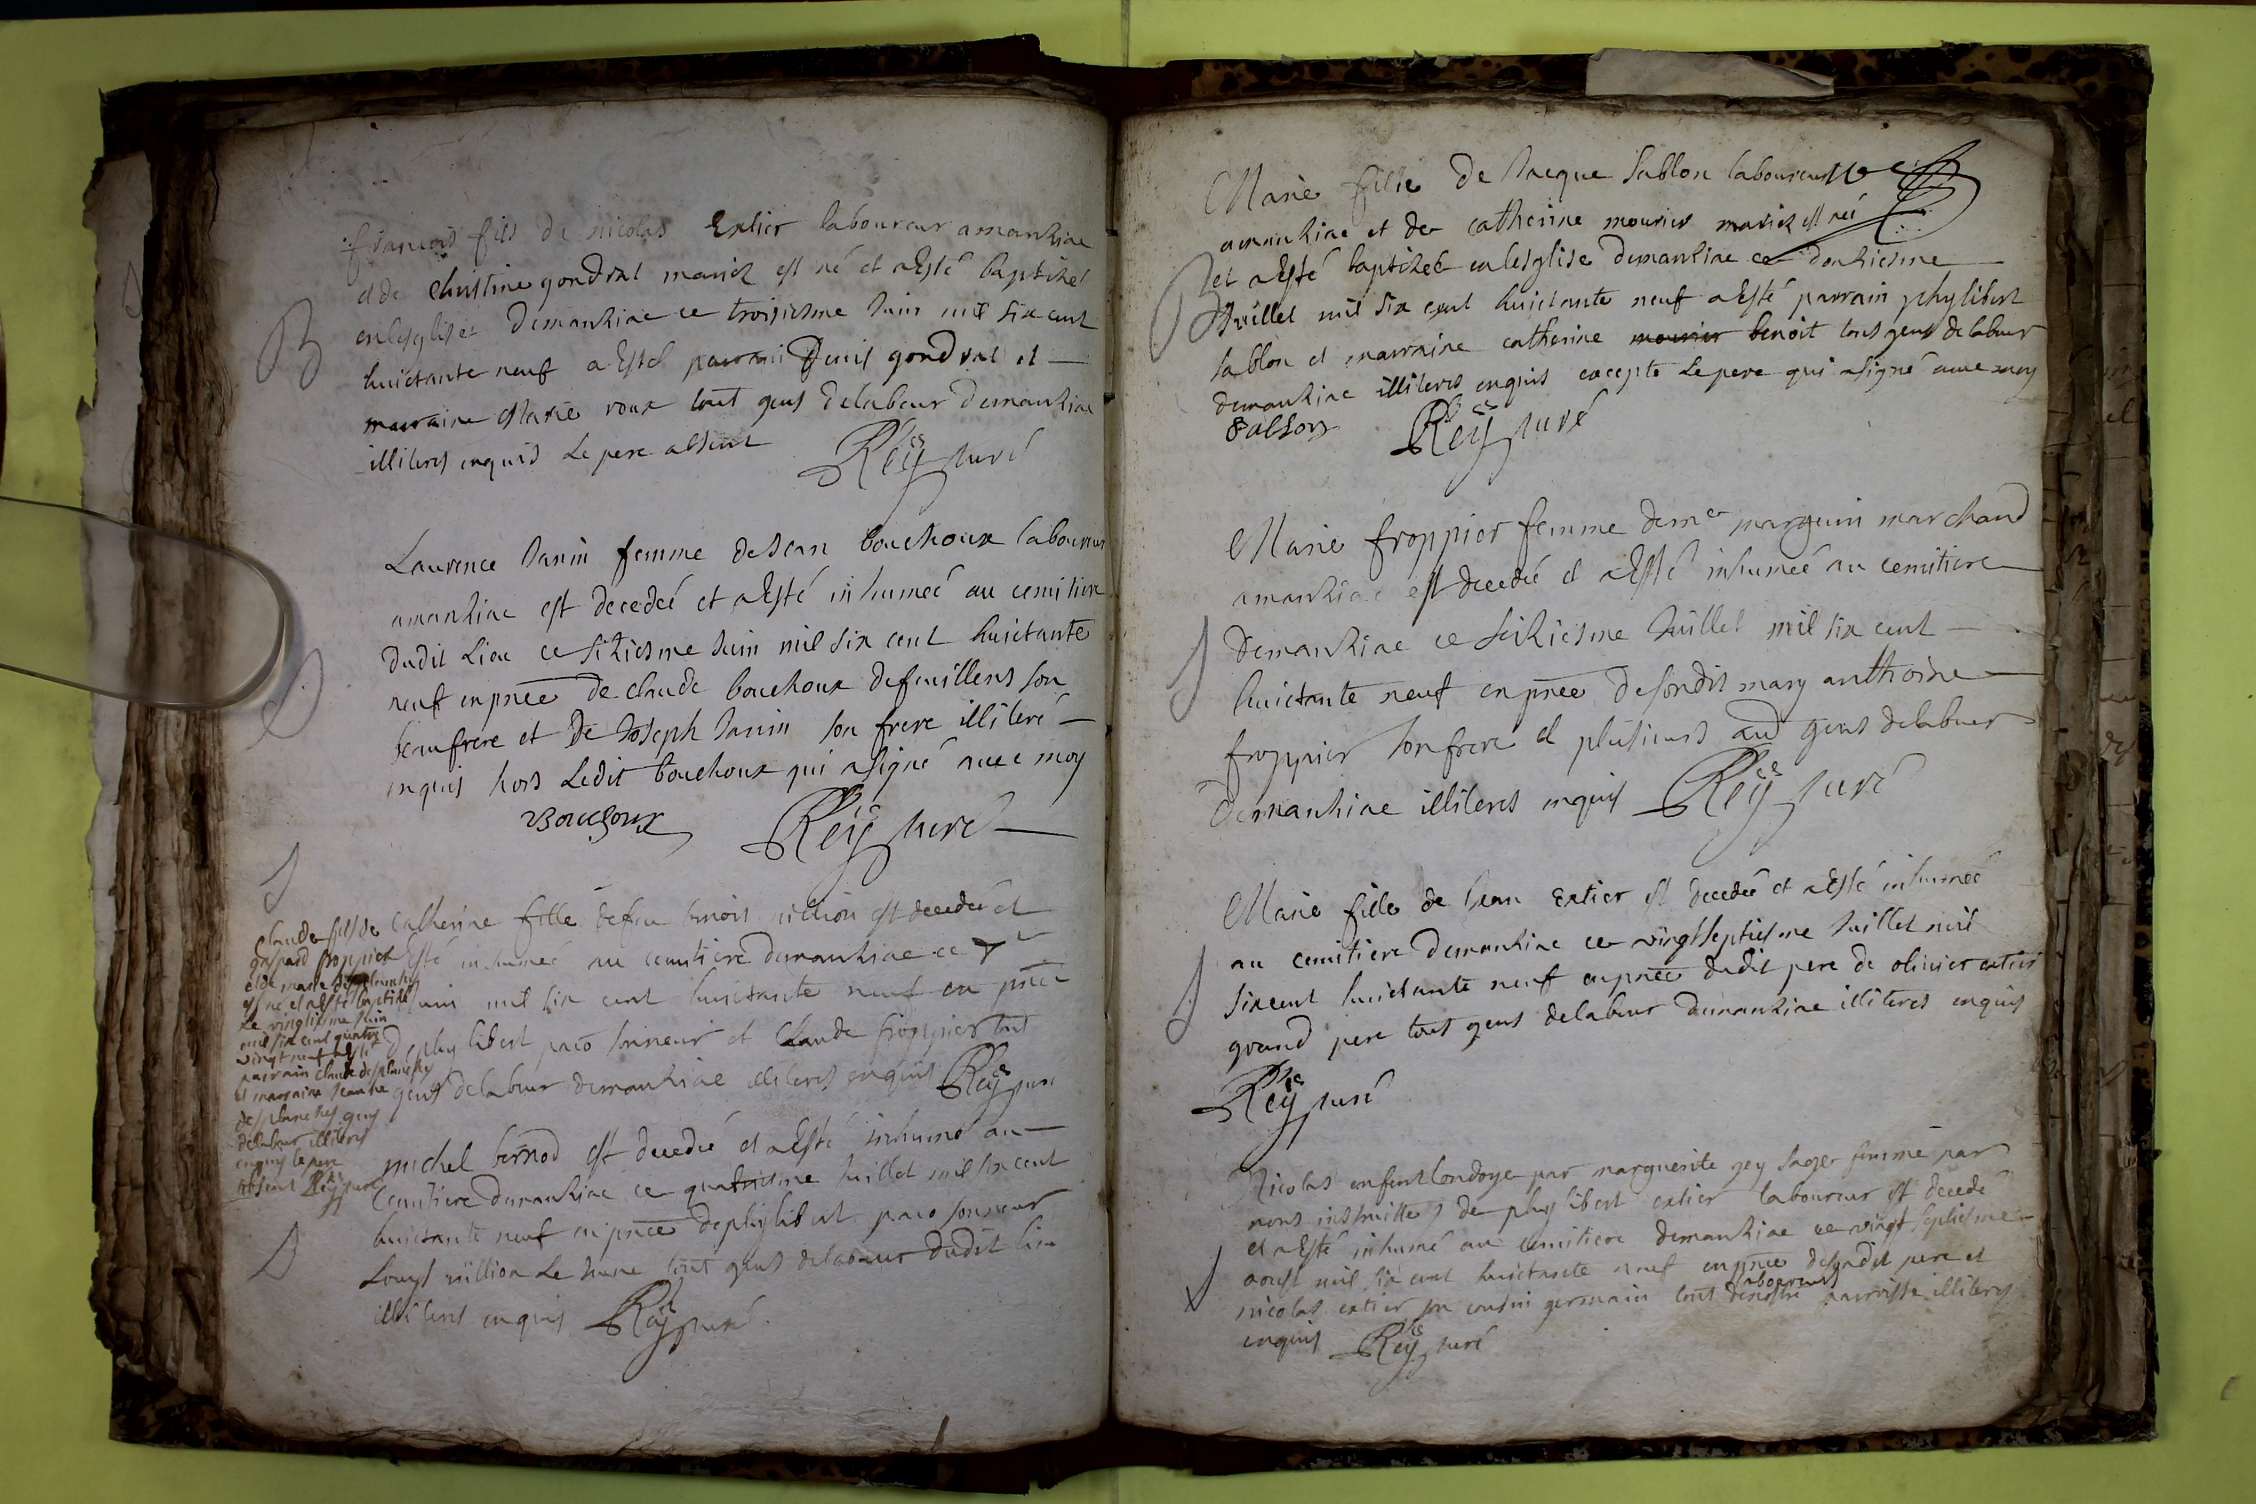 françois fils de nicolas Extier laboureur a manziac
et de Christine gondrat mariez est né et a Esté baptizé
en lesglise de manziac ce troisiesme Juin mil six cent
huictante neuf a Esté parrain Denis gondrat et
marraine Marie roux tout gens delabeur de manziac
illiteres enquis Le pere absent Reÿ curé
B
Laurence Janin femme de Jean bouchoux laboureur
a manziac est decedeé et a Esté inhumeé au cemitiere
dudit Lieu ce sixiesme Juin mil six cent huictante
neuf en pnce de claude bouchoux de fuillens son
beaufrere et De Joseph Janin son frere illiteré
enquis hors Ledit bouchoux qui a signé avec moy
Bouchoux Reÿ curé
Claude fils de
gaspard froppier
et de marie desplanches
est né et a esté baptizé
Le vingtiesme Juin
mil six cent quatre
vingt neuf a esté
parrain claude desplanches
et marraine Jeanne
desplanches gens
delabeur illiteres
enquis le pere
absent Reÿ curé
Catherine fille de feu benoit million est decedeé et
Esté inhumeé au cemitiere de manziac ce
Juin mil six cent huictante neuf en pnce
de phylibert paco sonneur et Claude froppier tout
gens delabeur de manziac illiteres enquis Reÿ curé
michel bernod est decedé et a Esté inhumé au
Cemitiere de manziac ce quatriesme Juillet mil six cent
huictante neuf en pnce de phylibert paco sonneur
Louys million Le Jeune tout gens delabeur dudit lieu
illiteres enquis Reÿ curé
Marie fille De Jacque Sablon laboureur
a manziac et de catherine mourier mariez est neé
et a Esté baptizeé en lesglise de manziac ce donziesme
Juillet mil six cent huictante neuf a Esté parrain phylibert
sablon et marraine catherine mourier benoit tous gens delabeur
de manziac illiteres enquis excepté Le pere qui a signé avec moy
Sablon Reÿ curé
B
Marie froppier femme de mre marguin marchand
a manziac est decedeé et a Esté inhumeé au cemitiere
de manziac ce seiziesme Juillet mil six cent
huictante neuf en pnce de sondit mary anthoine
froppier son frere et plusieurs aud gens delabeur
de manziac illiteres enquis Reÿ curé
Marie fille de Jean extier est decedeé et a Esté inhumeé
au cemitiere de manziac ce vingtseptiesme Juillet mil
six cent huictante neuf en pnce dudit pere de olivier extier
grand pere tout gens delabeur de manziac illiteres enquis
Reÿ curé
Nicolas enfent londoye par marguerite gey sage femme par
nous instruitte de phylibert extier laboureur est decedé
et a Esté inhumé au cemitiere de manziac ce vingt septiesme
aoust mil six cent huictante neuf en pnce desondit pere et
nicolas extier son cousin germain tout laboureurs de nostre parroisse illiteres
enquis Reÿ curé